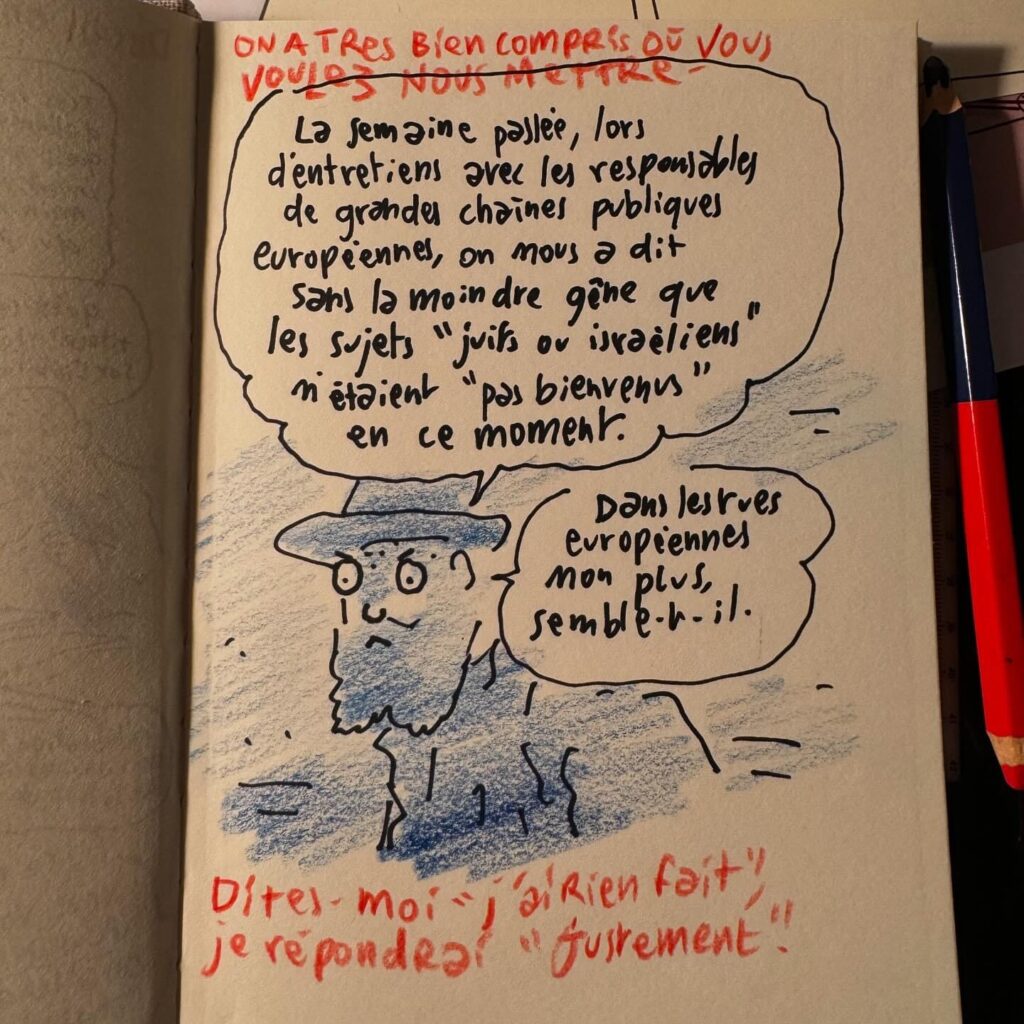 ON A TRES BIEN COMPRIS OÙ VOUS
VOULEZ NOUS METTRE-
La semaine passée, lors
d'entretiens avec les responsables
de grandes chaînes publiques
européennes, on nous a dit
sans la moindre gêne que
les sujets "juifs ou israéliens"
n'étaient "pas bienvenus"
en ce moment.
Dans les rues
européennes
non plus,
semble-t-il.
Dites-moi "j'ai Rien fait",
je répondrai "justement".